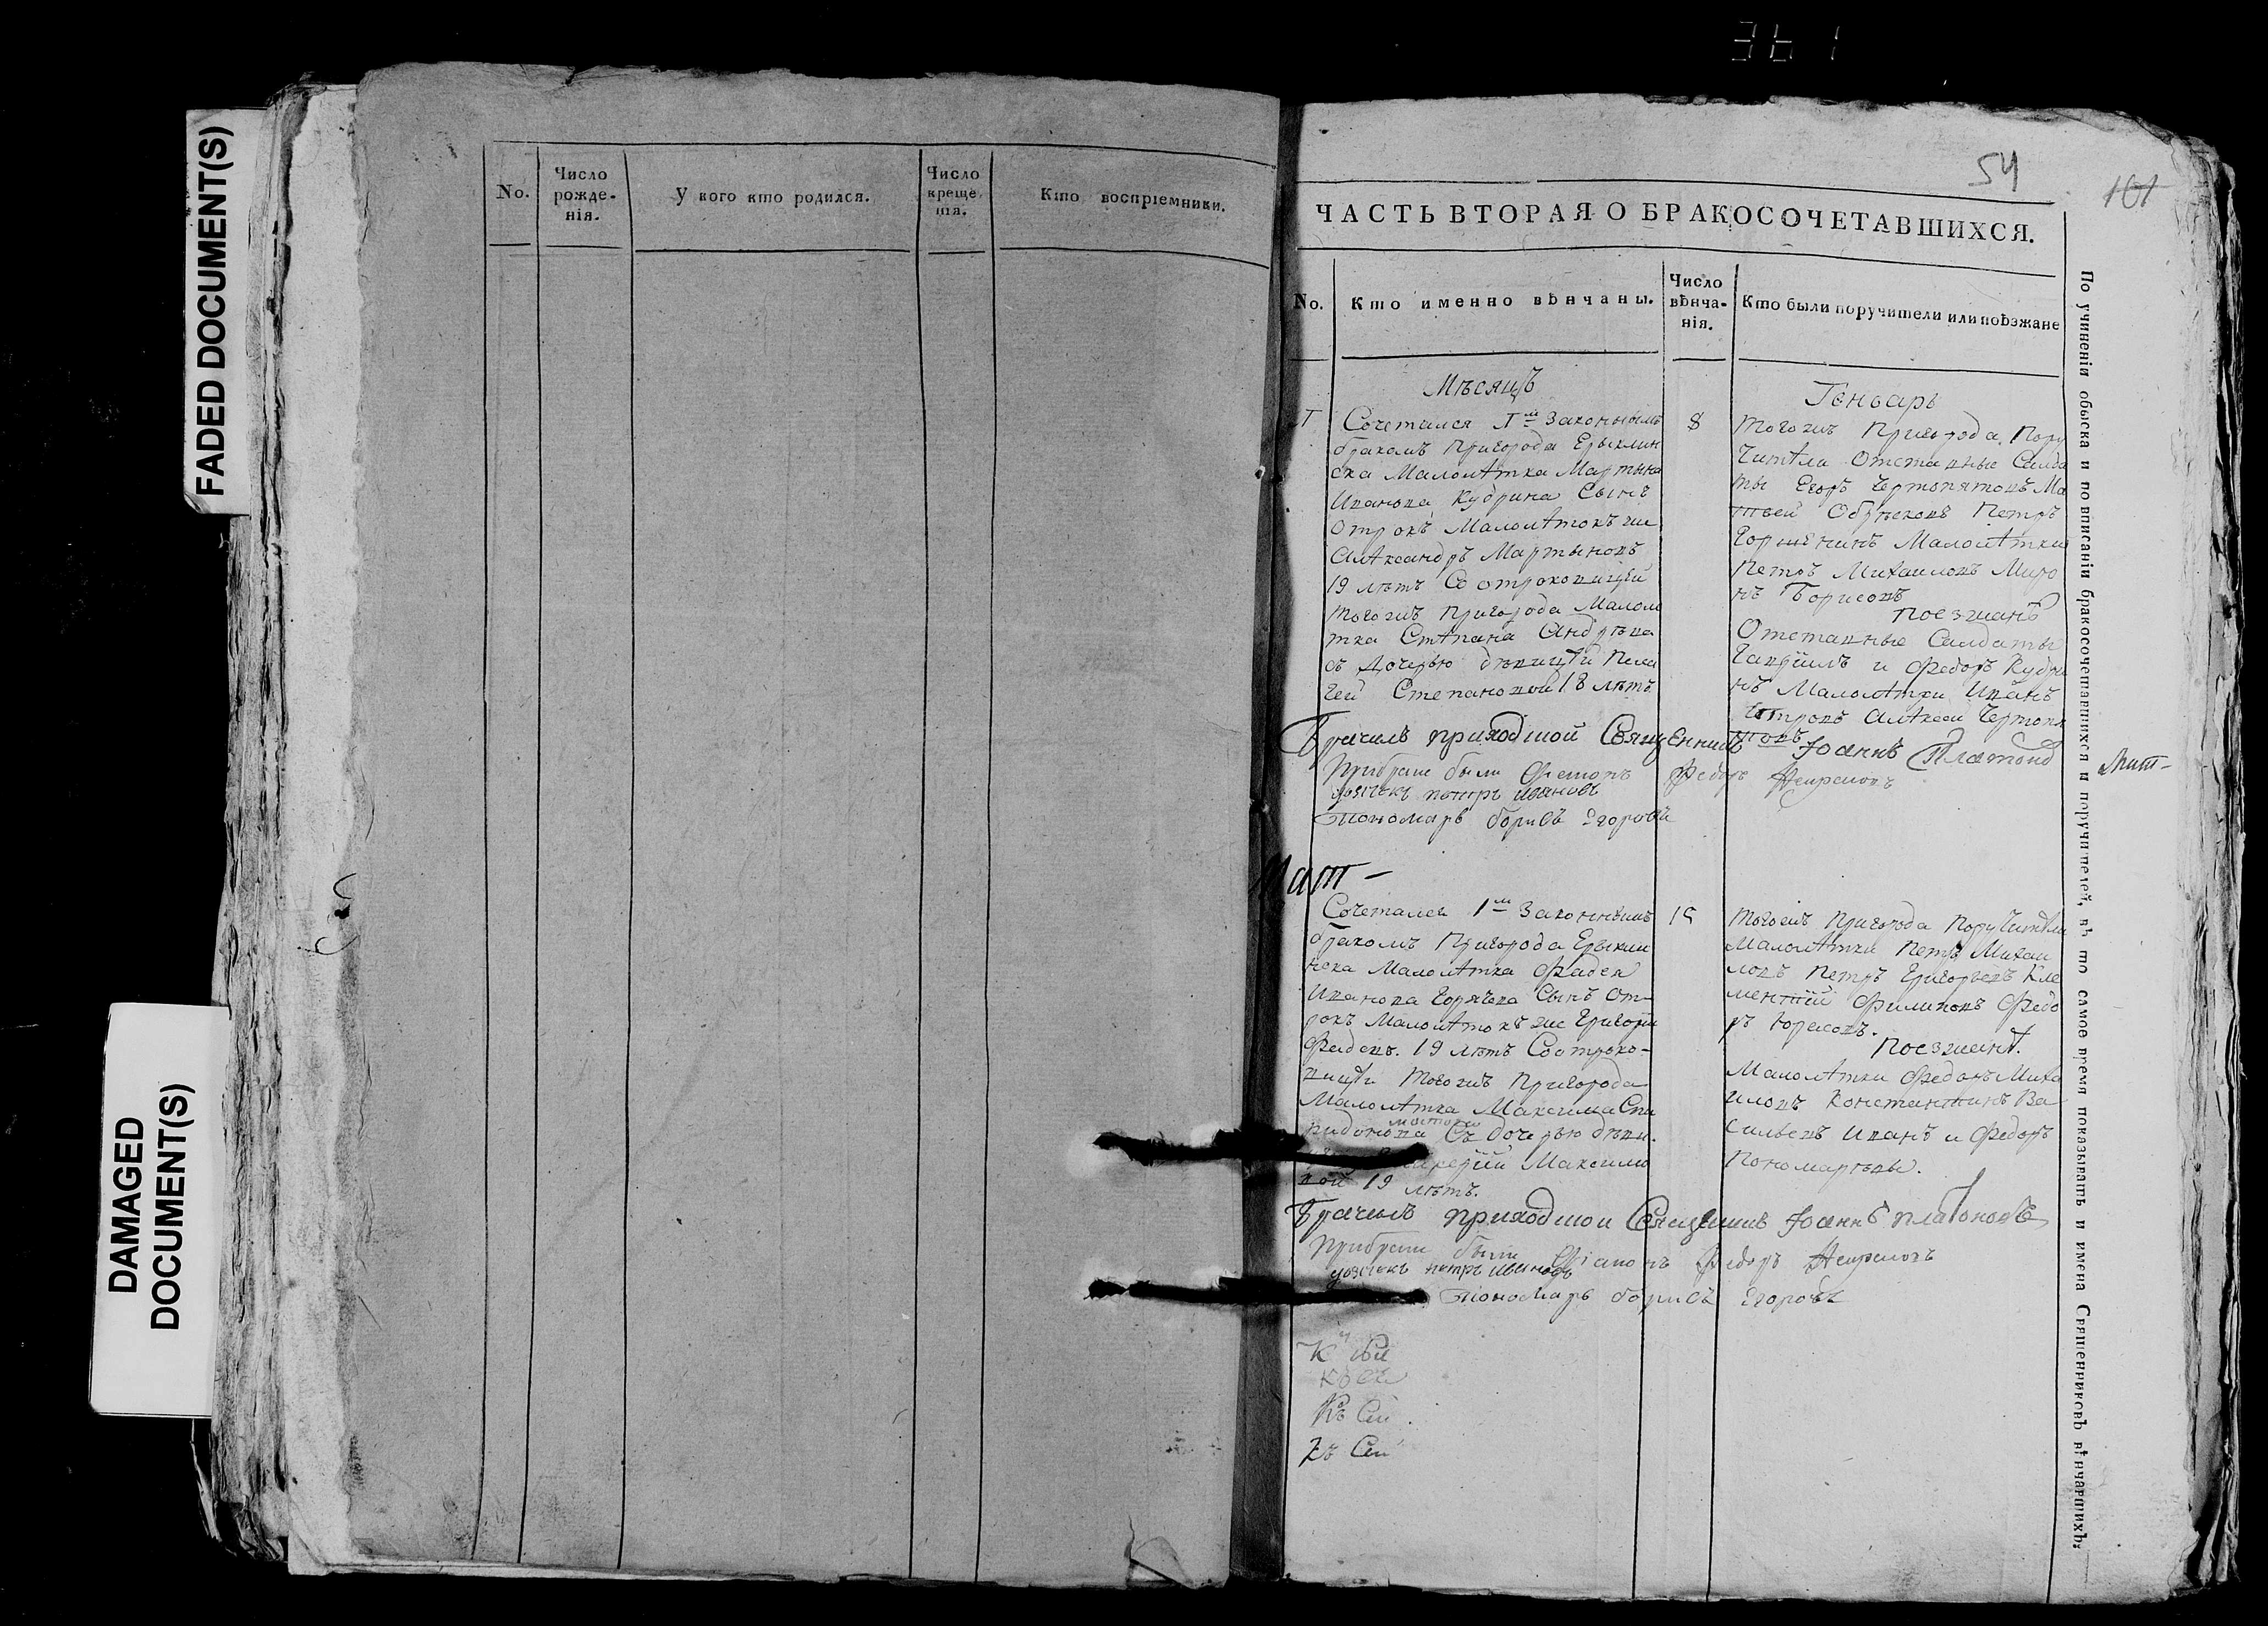 361
FADED DOCUMENT(S)
DAMAGED
DOCUMENT(S)
No.
Число
рожде-
нія.
У кого кто родился.
Число
креще
нія.
Кто воспріемники.
54
101
ЧАСТЬ ВТОРАЯ О БРАКОСОЧЕТАВШИХСЯ.
No.
Кто именно вѣнчаны.
Число
вѣнча-
нія.
Кто были поручители или поѣзжане
Мѣсяцъ
Геньварь
1
Сочетался 1м Законнымъ
бракомъ Пригорода Ерыклин
ска Малолѣтка Мартына
Иванова Кудрина Сынъ
отрокъ Малолѣтокъ же
Алѣксандръ Мартыновъ
19 лѣтъ Со отроковицей
тогожъ Пригорода Малолѣ
тка Стѣпана Андрѣева
съ Дочерью дѣвицѣй Пела
геи Степановой 18 лѣтъ
8
тогожъ Пригорода Пору
читѣли Отставные Салда
ты Егоръ Чертопятовъ Ма
твей Петръ
Горшенинъ Малолѣтки
Петръ Михаиловъ Миро
нъ Борисовъ
поезжанѣ
Отставные Салдаты
Гаврiилъ и Федоръ Кудри
нъ Малолѣтки Иванъ
Алѣксеи Чертопя
товъ
Брачилъ приходской Священникъ Іоаннъ Платонов
Прибраке были Федоръ
дьячекъ петръ ивановъ
Пономарь борисъ Егоровъ
Сочетался 1м Законнымъ
бракомъ Пригорода Ерыклин
ска Малолѣтка Фадея
Иванова Горячева Сынъ от-
рокъ Малолѣтокъ же Григорiи
Фадеевъ. 19 лѣтъ Соотроко-
вицѣи тогожъ Пригорода
Малолѣтка Максима Спи
ридонова Съ дочерью дѣви
Максимо
вой 19 лѣтъ.
15
тогожъ Пригорода Поручитѣли
Малолѣтки Петръ Михаи
ловъ Петръ Григорьевъ Кле
ментiй Филиповъ Федо
ръ Борисовъ.
Поезжанѣ.
Малолѣтки Федоръ Миха
иловъ Константинъ Ва
сильевъ Иванъ и Федоръ
Пономаревы.
Брачилъ приходской Священникъ Іоаннъ платоновъ
Прибраке были Федоръ
дьячекъ петръ ивановъ
Пономарь борисъ Егоровъ
Къ Сей
Къ Сей
По учиненіи обыска и по вписаніи бракосочетавшихся и поручителей, въ то самое время показывать и имена Священниковъ вѣнчавшихъ.